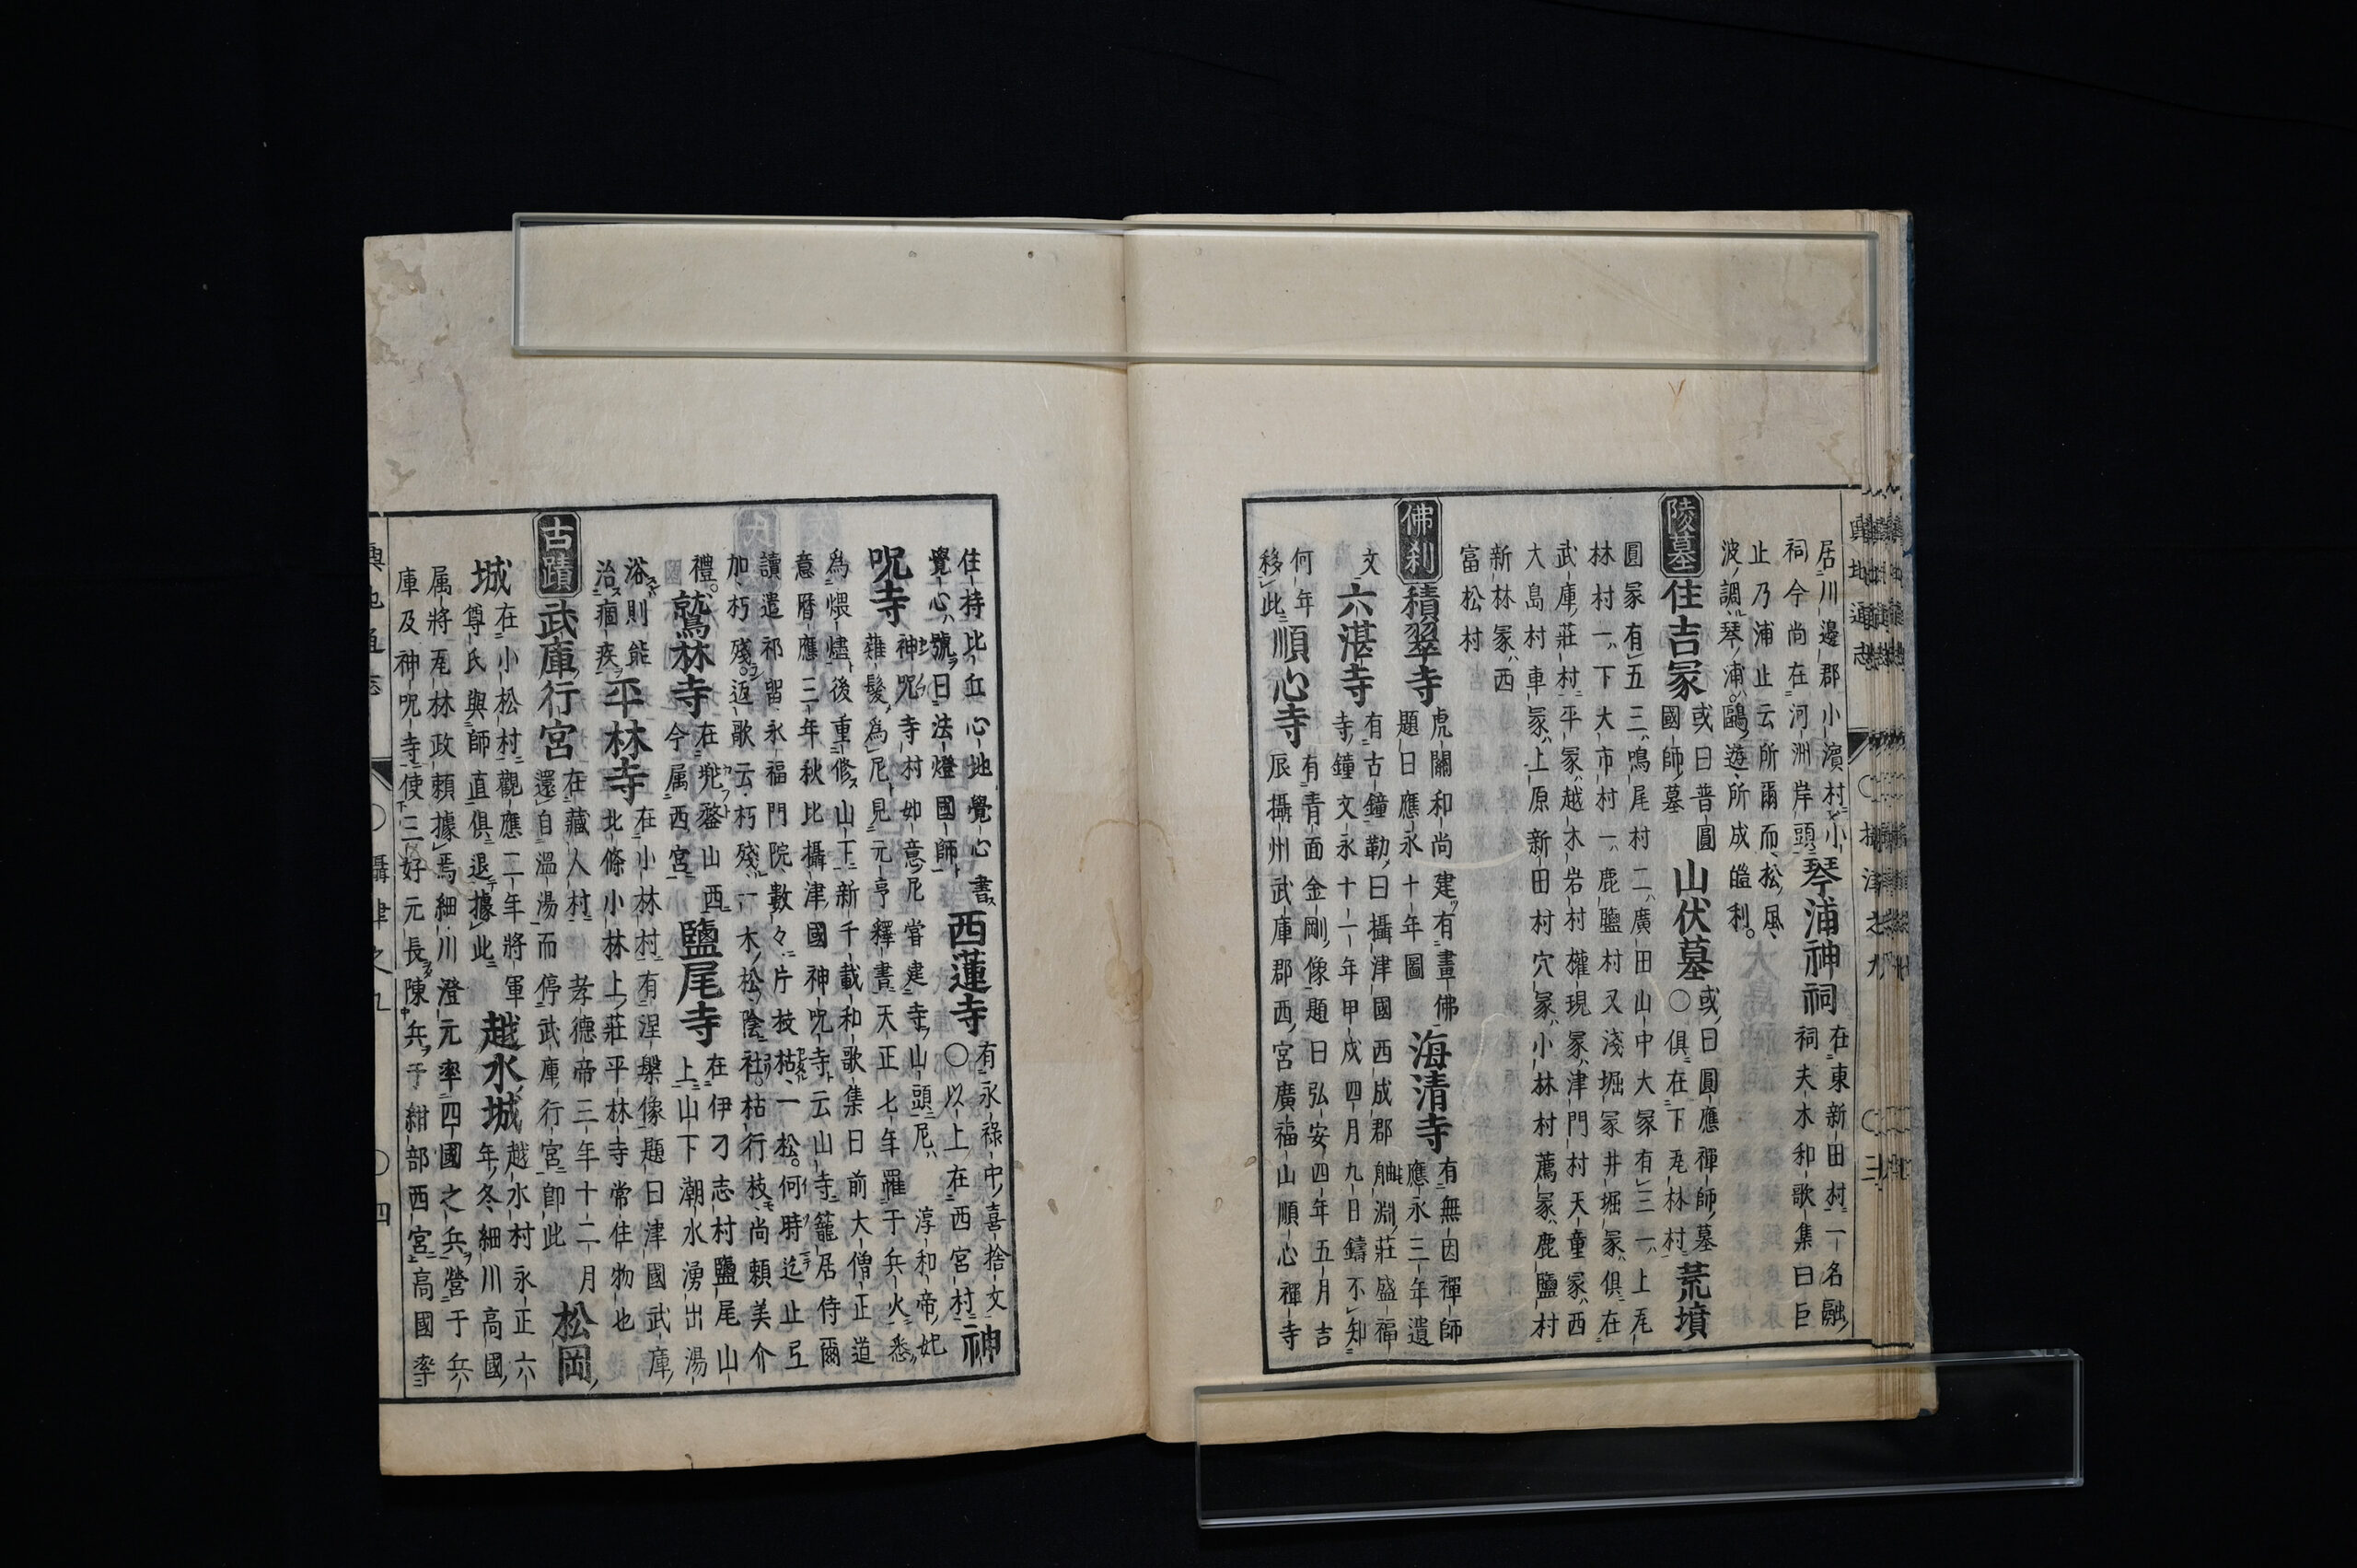 輿地通志 〇攝津之九 〇三
居川邊郡小濱村小
祠今尚在河洲岸頭
琴浦神祠
在東新田村一名融
祠夫木和歌集曰巨
止乃浦止云所爾而松風
波調琴浦鷗遊所成皚利
陵墓
住吉冢
或曰普圓
國師墓
山伏墓
或曰圓應禪師墓
〇俱在下瓦林村
荒墳
圓冢有五三鳴尾村二廣田山中大冢有三一上瓦
林村一下大市村一鹿鹽村又淺堀冢井堀冢俱在
武庫莊村平冢越木岩村權現冢津門村天童冢西
大島村車冢上原新田村穴冢小林村薦冢鹿鹽村
新林冢西
富松村
佛刹
積翠寺
虎關和尚建有畫佛
題曰應永十年圖
海清寺
有無因禪師
應永三年遺
文
六湛寺
有古鐘勒曰攝津國西成郡舳淵莊盛福
寺鐘文永十一年甲戌四月九日鑄不知
何年
移此
順心寺
有青面金剛像題曰弘安四年五月吉
辰攝州武庫郡西宮廣福山順心禪寺
住持比丘心地覺心書
覺心號曰法燈國師
西蓮寺
有永祿中喜捨文
〇以上在西宮村
神
呪寺
神呪寺村如意尼嘗建寺山頭尼淳和帝妃
薙髮為尼見元亨釋書天正七年罹于兵火悉
為煨燼後重修山下新千載和歌集曰前大僧正道
意曆應三年秋比攝津國神呪寺云山寺籠居侍爾
讀遣祁留永福門院數々片枝枯一松何時迄止弖
加朽殘返歌云朽殘一木松陰社枯行枝尚賴美介
禮
鷲林寺
在鍪山西
今属西宮
鹽尾寺
在伊孑志村鹽尾山
上山下潮水湧出湯
浴則能
治痼疾
平林寺
在小林村有涅槃像題曰津國武庫
北條小林上莊平林寺常住物也
古蹟
武庫行宮
在藏人村孝德帝三年十二月
還自溫湯而停武庫行宮卽此
松岡
城
在小松村觀應二年將軍
尊氏與師直俱退據此
越水城
越水村永正六
年冬細川高國
属將瓦林政賴據焉細川澄元率四國之兵營于兵
庫及神呪寺使三好元長陳兵于紺部西宮高國率
輿地通志 〇攝津之九 〇四